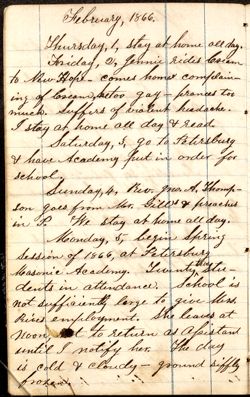 February, 1866.
Thursday, 1, stay at home all day.
Friday, 2, Jennie rides
to New Hope - comes home complain-
ing of too gay - prances too
much. Suffers of violent headache.
I stay at home all day & read.
Saturday, 3, go to Petersburg
& have Academy put in order for
school.
Sunday, 4, Rev. Jno. A. Thomp-
son goes from Mr. Gill's & preaches
in P. We stay at home all day.
Monday, 5, begin Spring
session of 1866, at Petersburg
Masonic Academy. Twenty Stu-
dents in attendance. School is
not sufficiently large to give Mrs.
employment. She leaves at
noon, not to return as Assistant
until I notify her. The day
is cold & cloudy - ground stiffly
frozen.